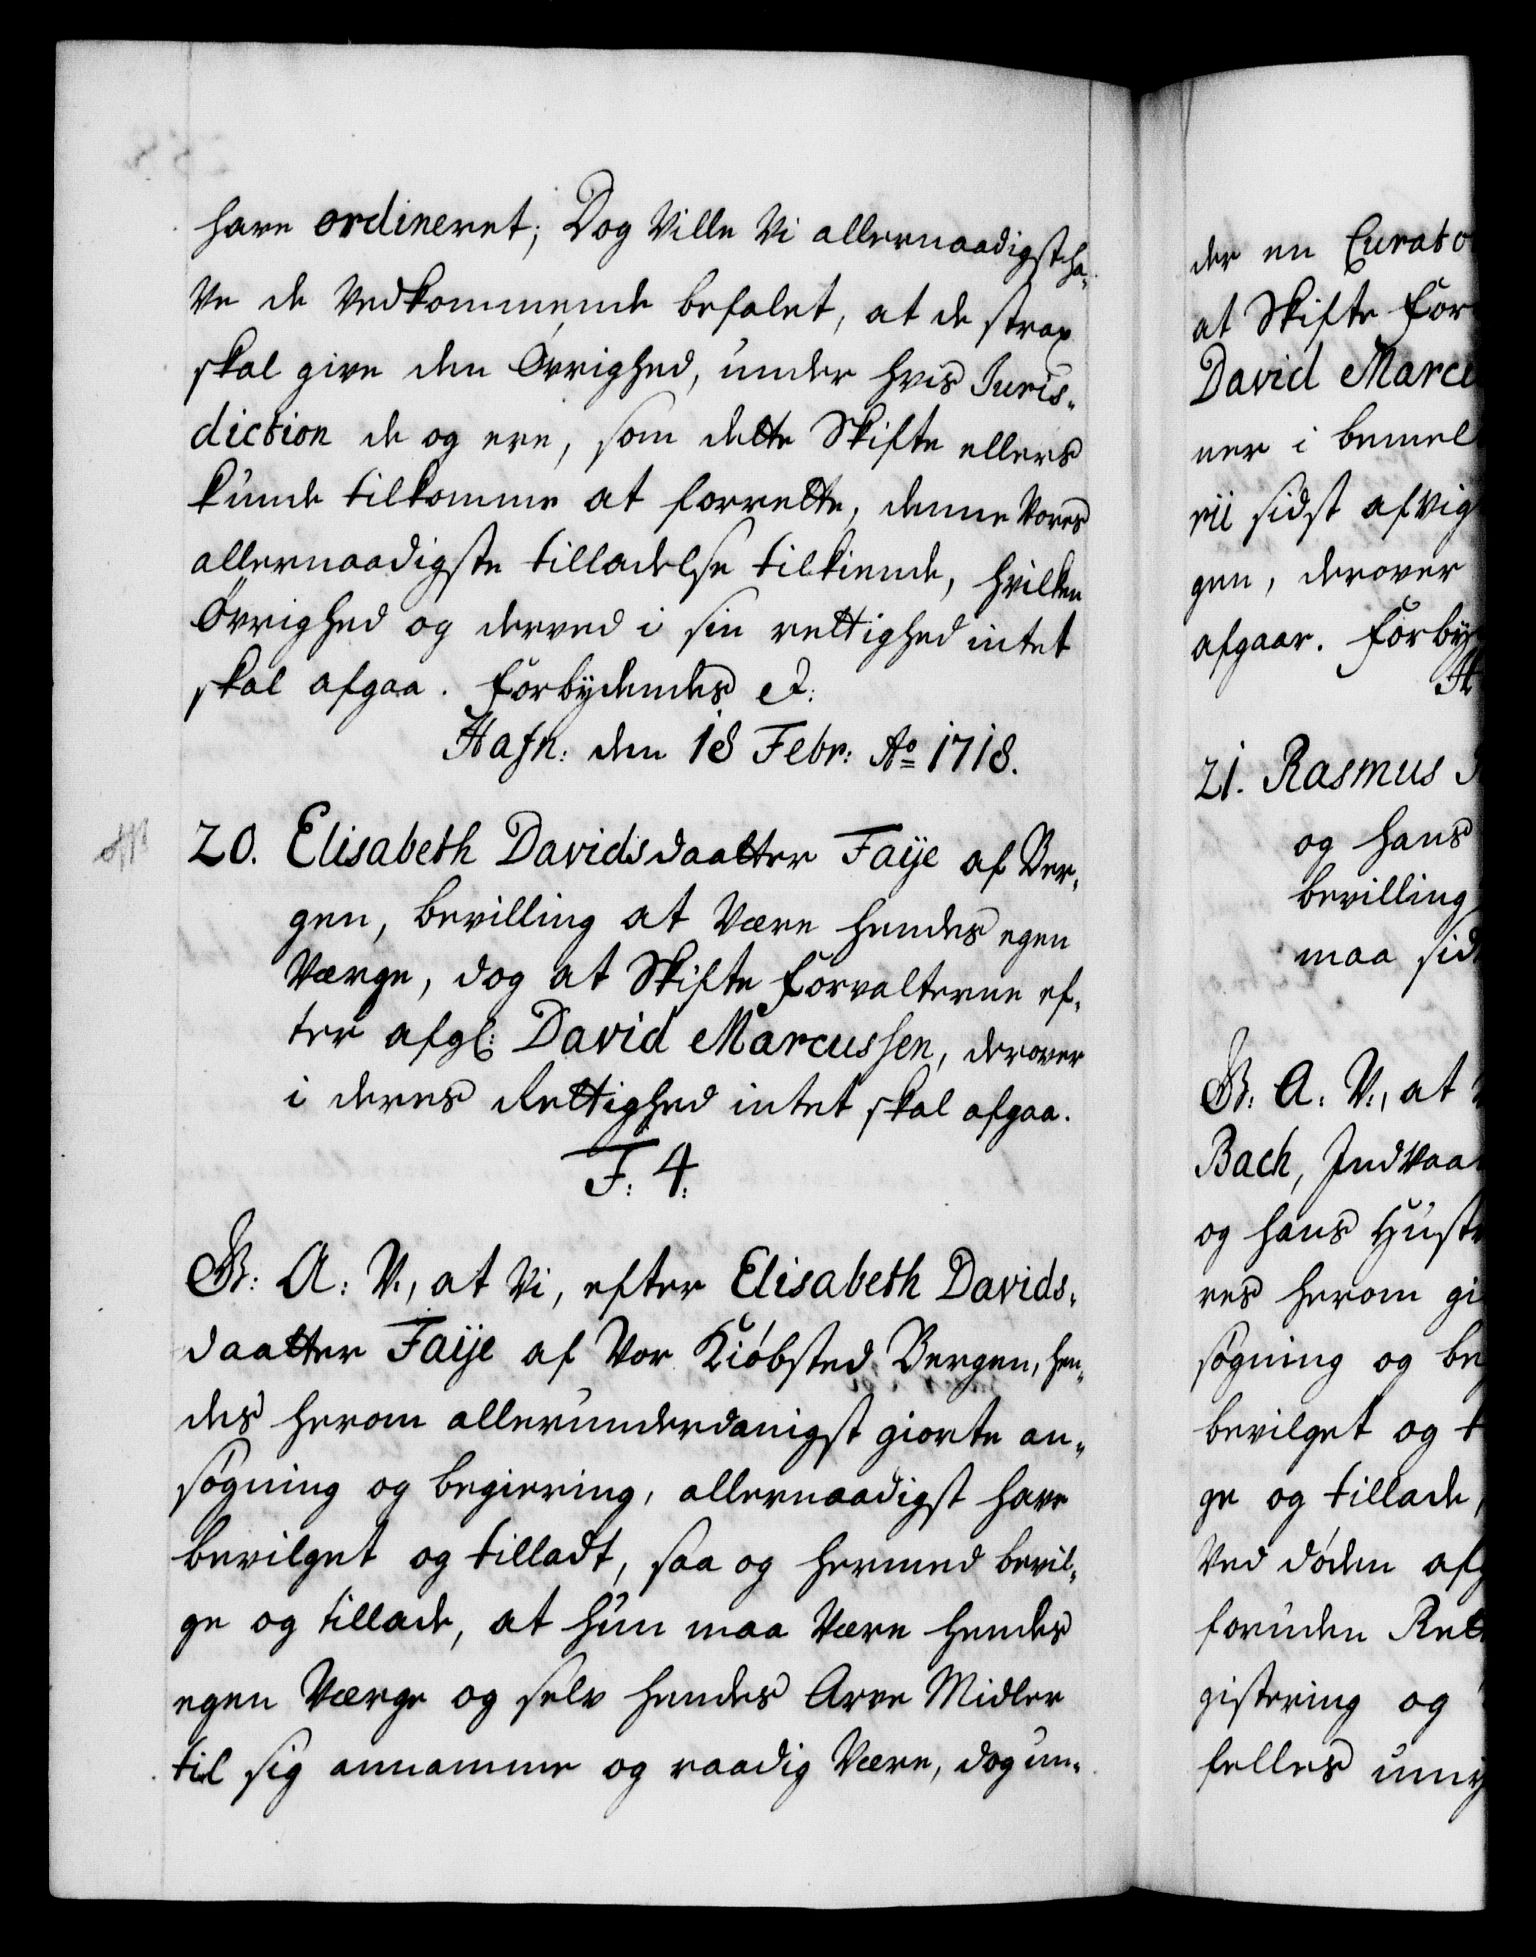 have ordineret; Dog Ville Vi allernaadigst ha-
Ve de Vedkommende befalet, at de strax
skal give den Øvrighed, under hvis Juris-
diction de og ere, som dette Skifte ellers
kunde tilkomme at forrette, denne Vores
allernaadigste tilladelse tilkiende, hvilken
Øvrighed og derved i sin rettighed intet
skal afgaa. Forbydendes etc:
Hafn: den 18 Febr: Ao 1718.
20. Elisabeth Davidsdaatter Faije af Ber-
gen, bevilling at Være hendes egen
Værge, dog at Skifte Forvalterne ef-
ter afgl: David Marcussen, derover
i deres Rettighed intet skal afgaa.
F: 4:
G: A: V:, at Vi, efter Elisabeth Davids-
daatter Faije af Vor Kiøbsted Bergen, hen-
des herom allerunderdanigst giorte an-
søgning og begiering, allernaadigst have
bevilget og tilladt, saa og hermed bevil-
ge og tillade, at hun maa Være hendes
egen Værge og selv hendes Arve Midler
til sig annamme og raadig Være, dog un-
der en Curato
at Skifte For
David Marcu
ner i bemel
rii sidst afvig
gen, derover
afgaar. Forby
H
21. Rasmus
og hans
bevilling
maa sid
G: A: V:, at
Bach, Indvaa
og hans Hustr
res herom gi
søgning og be
bevilget og t
ge og tillade,
Ved døden afg
foruden Rett
gistering og
felles umy